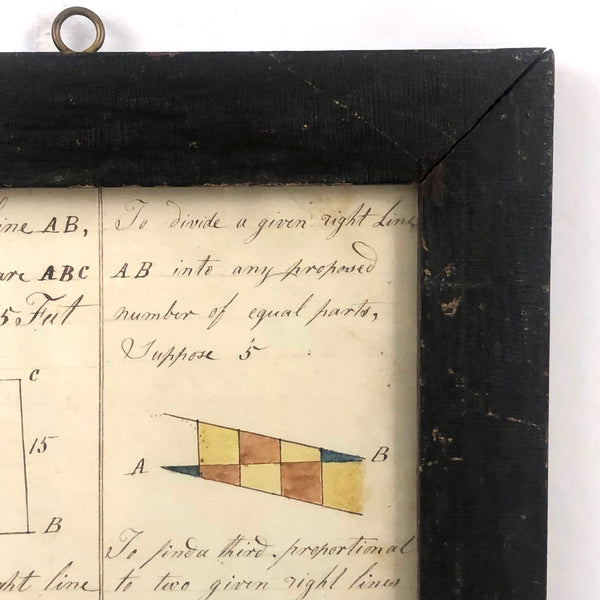 ine AB,
are ABC
5 Feet
C
15
B
ght line
To divide a given right Line
AB into any proposed
number of equal parts,
Suppose 5
A
B
To find a third proportional
to two given right lines